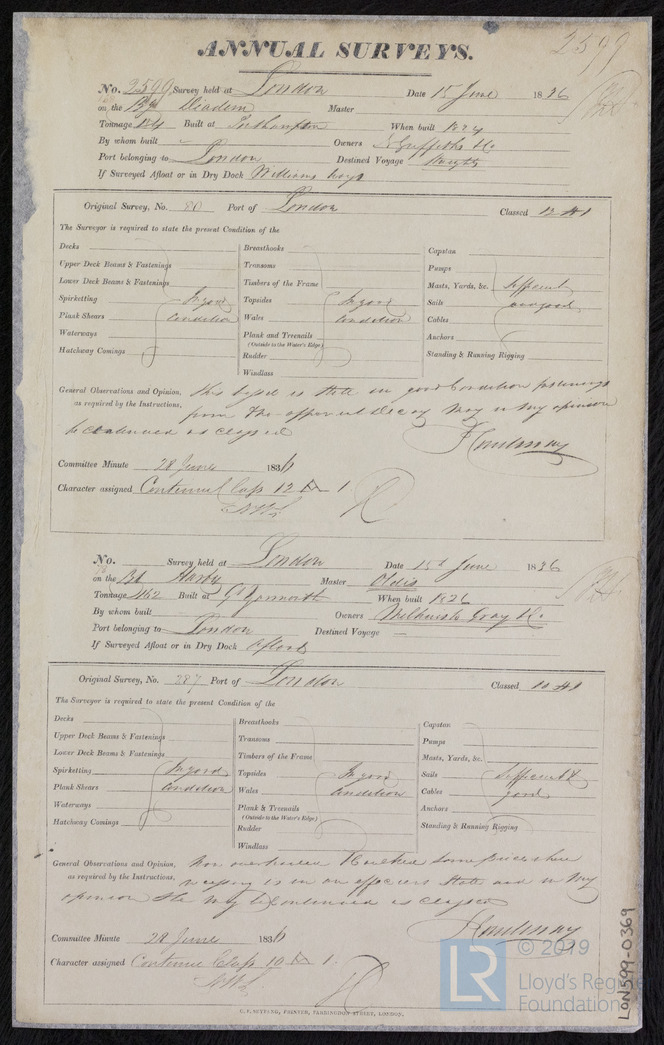 2599
ANNUAL SURVEYS.
No. 2599 Survey held at London Date 15 June 1836
on the Bg Diadem Master
Tonnage 124 Built at Northampton When built 1824
By whom built Owners Griffiths &c
Port belonging to London Destined Voyage
If Surveyed Afloat or in Dry Dock Williams
Original Survey, No. 80 Port of London Classed 12 A1
The Surveyor is required to state the present Condition of the
Decks Breasthooks Capstan
Upper Deck Beams & Fastenings Transoms Pumps
Lower Deck Beams & Fastenings Timbers of the Frame Masts, Yards, &c. Sufficient
Spirketting In good Topsides In good Sails and good
Plank Shears Condition Wales Condition Cables
Waterways Plank and Treenails Anchors
(Outside to the Water's Edge)
Hatchway Comings Rudder Standing & Running Rigging
Windlass
General Observations and Opinion, this vessel is state in good Condition
as required by the Instructions, from the Decay May in my opinion
be Continued as Classed
Committee Minute 28 June 1836
Character assigned Continued Class 12 A 1.
No. Survey held at London Date 15th June 1836
on the Bk Harby Master Oldis
Tonnage 462 Built at Gt Yarmouth When built 1826
By whom built Owners Gray &c.
Port belonging to London Destined Voyage —
If Surveyed Afloat or in Dry Dock Afloat
Original Survey, No. 287 Port of London Classed 10 A1
The Surveyor is required to state the present Condition of the
Decks Breasthooks Capstan
Upper Deck Beams & Fastenings Transoms Pumps
Lower Deck Beams & Fastenings Timbers of the Frame Masts, Yards, &c.
Spirketting In good Topsides In good Sails Sufficient &
Plank Shears Condition Wales Condition Cables good
Waterways Plank & Treenails Anchors
(Outside to the Water's Edge)
Hatchway Comings Rudder Standing & Running Rigging
Windlass
General Observations and Opinion, some places where
as required by the Instructions, necessary is in an efficient State and in my
opinion She may be Continued as Classed
Committee Minute 28 June 1836
Character assigned Continue Class 10 A 1.
C. F. SEYFANG, PRINTER, FARRINGDON STREET, LONDON.
LR © 2019
Lloyd's Register
Foundation
LON599-0369